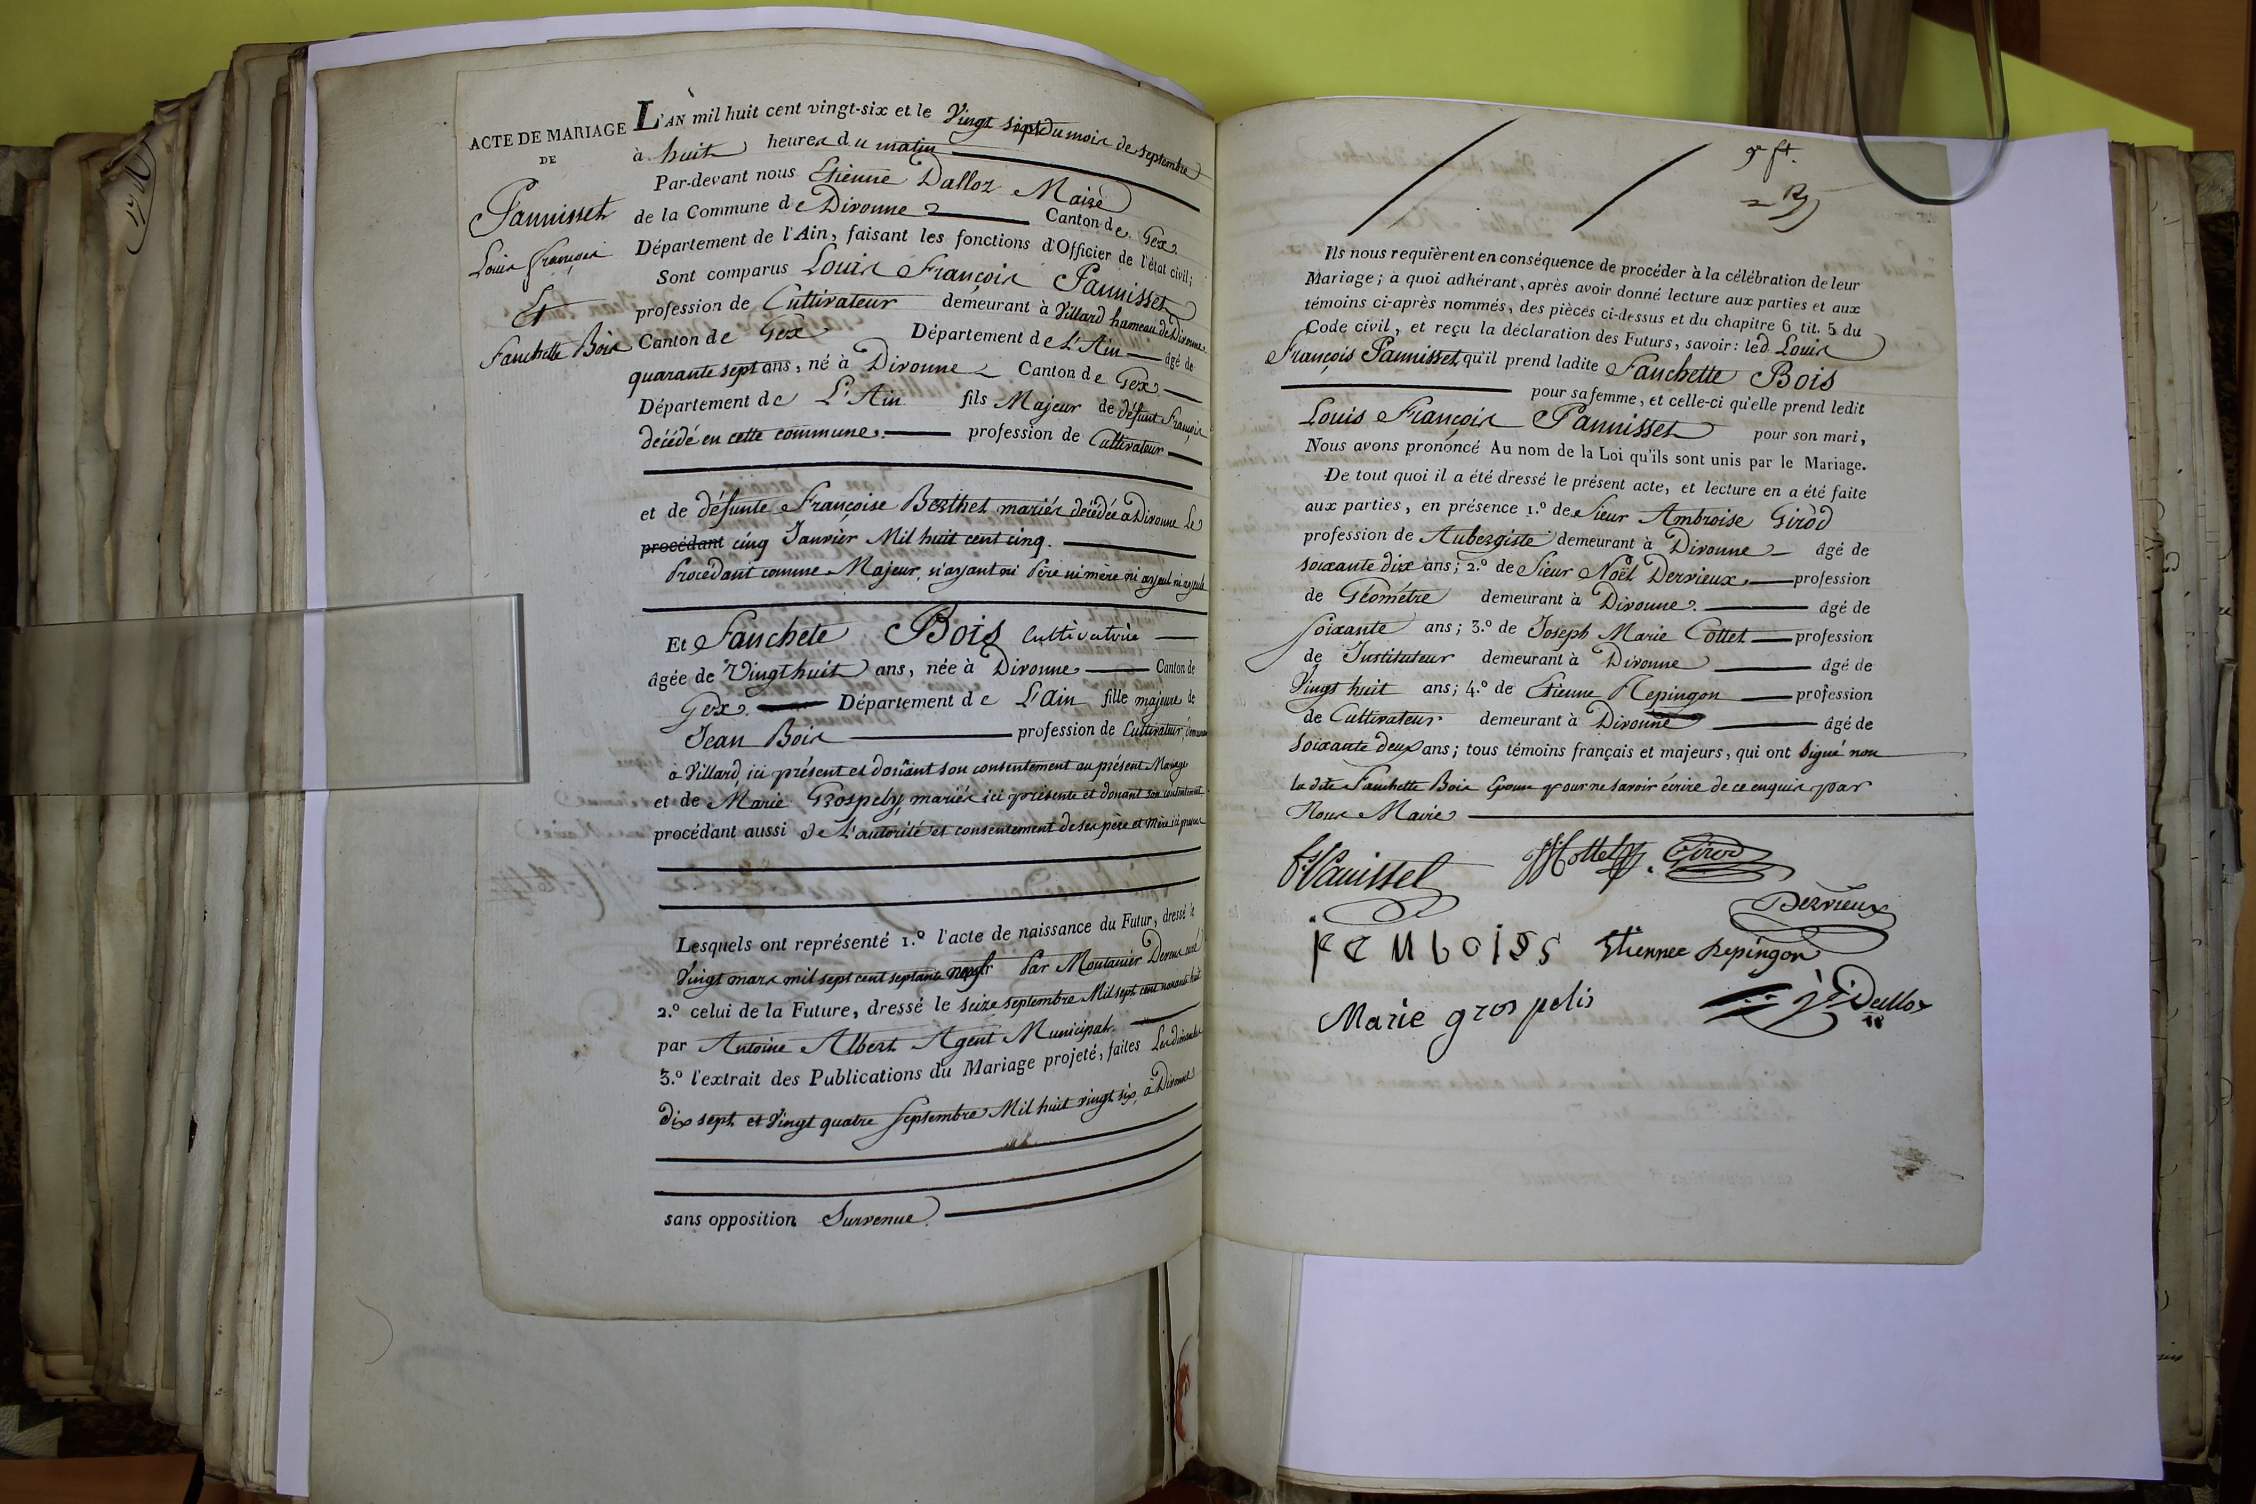 ACTE DE MARIAGE
DE
Pannisset
Louis françois
Et
Fanchette Bois
L'AN mil huit cent vingt-six et le Vingt sept du mois de septembre
à huit heures du matin
Par-devant nous Etienne Dalloz Maire
de la Commune de Divonne Canton de Gex
Département de l'Ain, faisant les fonctions d'Officier de l'état civil;
Sont comparus Louis François Pannisset
profession de Cultivateur demeurant à Villard hameau de Divonne
Canton de Gex Département de L'Ain âgé de
quarante sept ans, né à Divonne Canton de Gex
Département de L'Ain fils Majeur de défunt François
décédé en cette commune. profession de Cultivateur
et de défunte Françoise Berthet mariés décédée a Divonne Le
procédant cinq Janvier Mil huit cent cinq.
Procédant comme Majeur, n'ayant ni Père ni mère ni ayeul ni ayeule
Et Fanchete Bois Cultivatrice
âgée de Vingt huit ans, née à Divonne Canton de
Gex. Département de L'Ain fille majeure de
Jean Bois profession de Cultivateur, demeurant
à Villard, ici présent et donnant son consentement au présent Mariage
et de Marie Grospely mariés ici présente et donant son consentement
procédant aussi de L'autorité et consentement de ses père et mère ici présens
Lesquels ont représenté 1.º l'acte de naissance du Futur, dressé le
Vingt mars mil sept cent septante neuf Par Moutanier Derme curé
2.º celui de la Future, dressé le seize septembre Mil sept cent nonante huit
par Antoine Albert Agent Municipal.
3.º l'extrait des Publications du Mariage projeté, faites Les dimanches
dix sept et Vingt quatre Septembre Mil huit vingt six, à Divonne
sans opposition Survenue.
9e ft.
Ils nous requièrent en conséquence de procéder à la célébration de leur
Mariage; à quoi adhérant, après avoir donné lecture aux parties et aux
témoins ci-après nommés, des pièces ci-dessus et du chapitre 6 tit. 5 du
Code civil, et reçu la déclaration des Futurs, savoir: led. Louis
François Pannisset qu'il prend ladite Fanchette Bois
pour sa femme, et celle-ci qu'elle prend ledit
Louis François Pannisset pour son mari,
Nous avons prononcé Au nom de la Loi qu'ils sont unis par le Mariage.
De tout quoi il a été dressé le présent acte, et lecture en a été faite
aux parties, en présence 1.º de Sieur Ambroise Girod
profession de Aubergiste demeurant à Divonne âgé de
soixante dix ans; 2.º de Sieur Noël Dervieux profession
de Géométre demeurant à Divonne. âgé de
soixante ans; 3.º de Joseph Marie Cottet profession
de Instituteur demeurant à Divonne âgé de
Vingt huit ans; 4.º de Etienne Repingon profession
de Cultivateur demeurant à Divonne âgé de
soixante deux ans; tous témoins français et majeurs, qui ont signé non
la dite Fanchette Bois Epouse pour ne savoir écrire de ce enquis par
Nous Maire
Fs Panisset JM Cottet Girod
Dervieux
jean boiss Etiennee Repingon
Marie gros pelis Dalloz